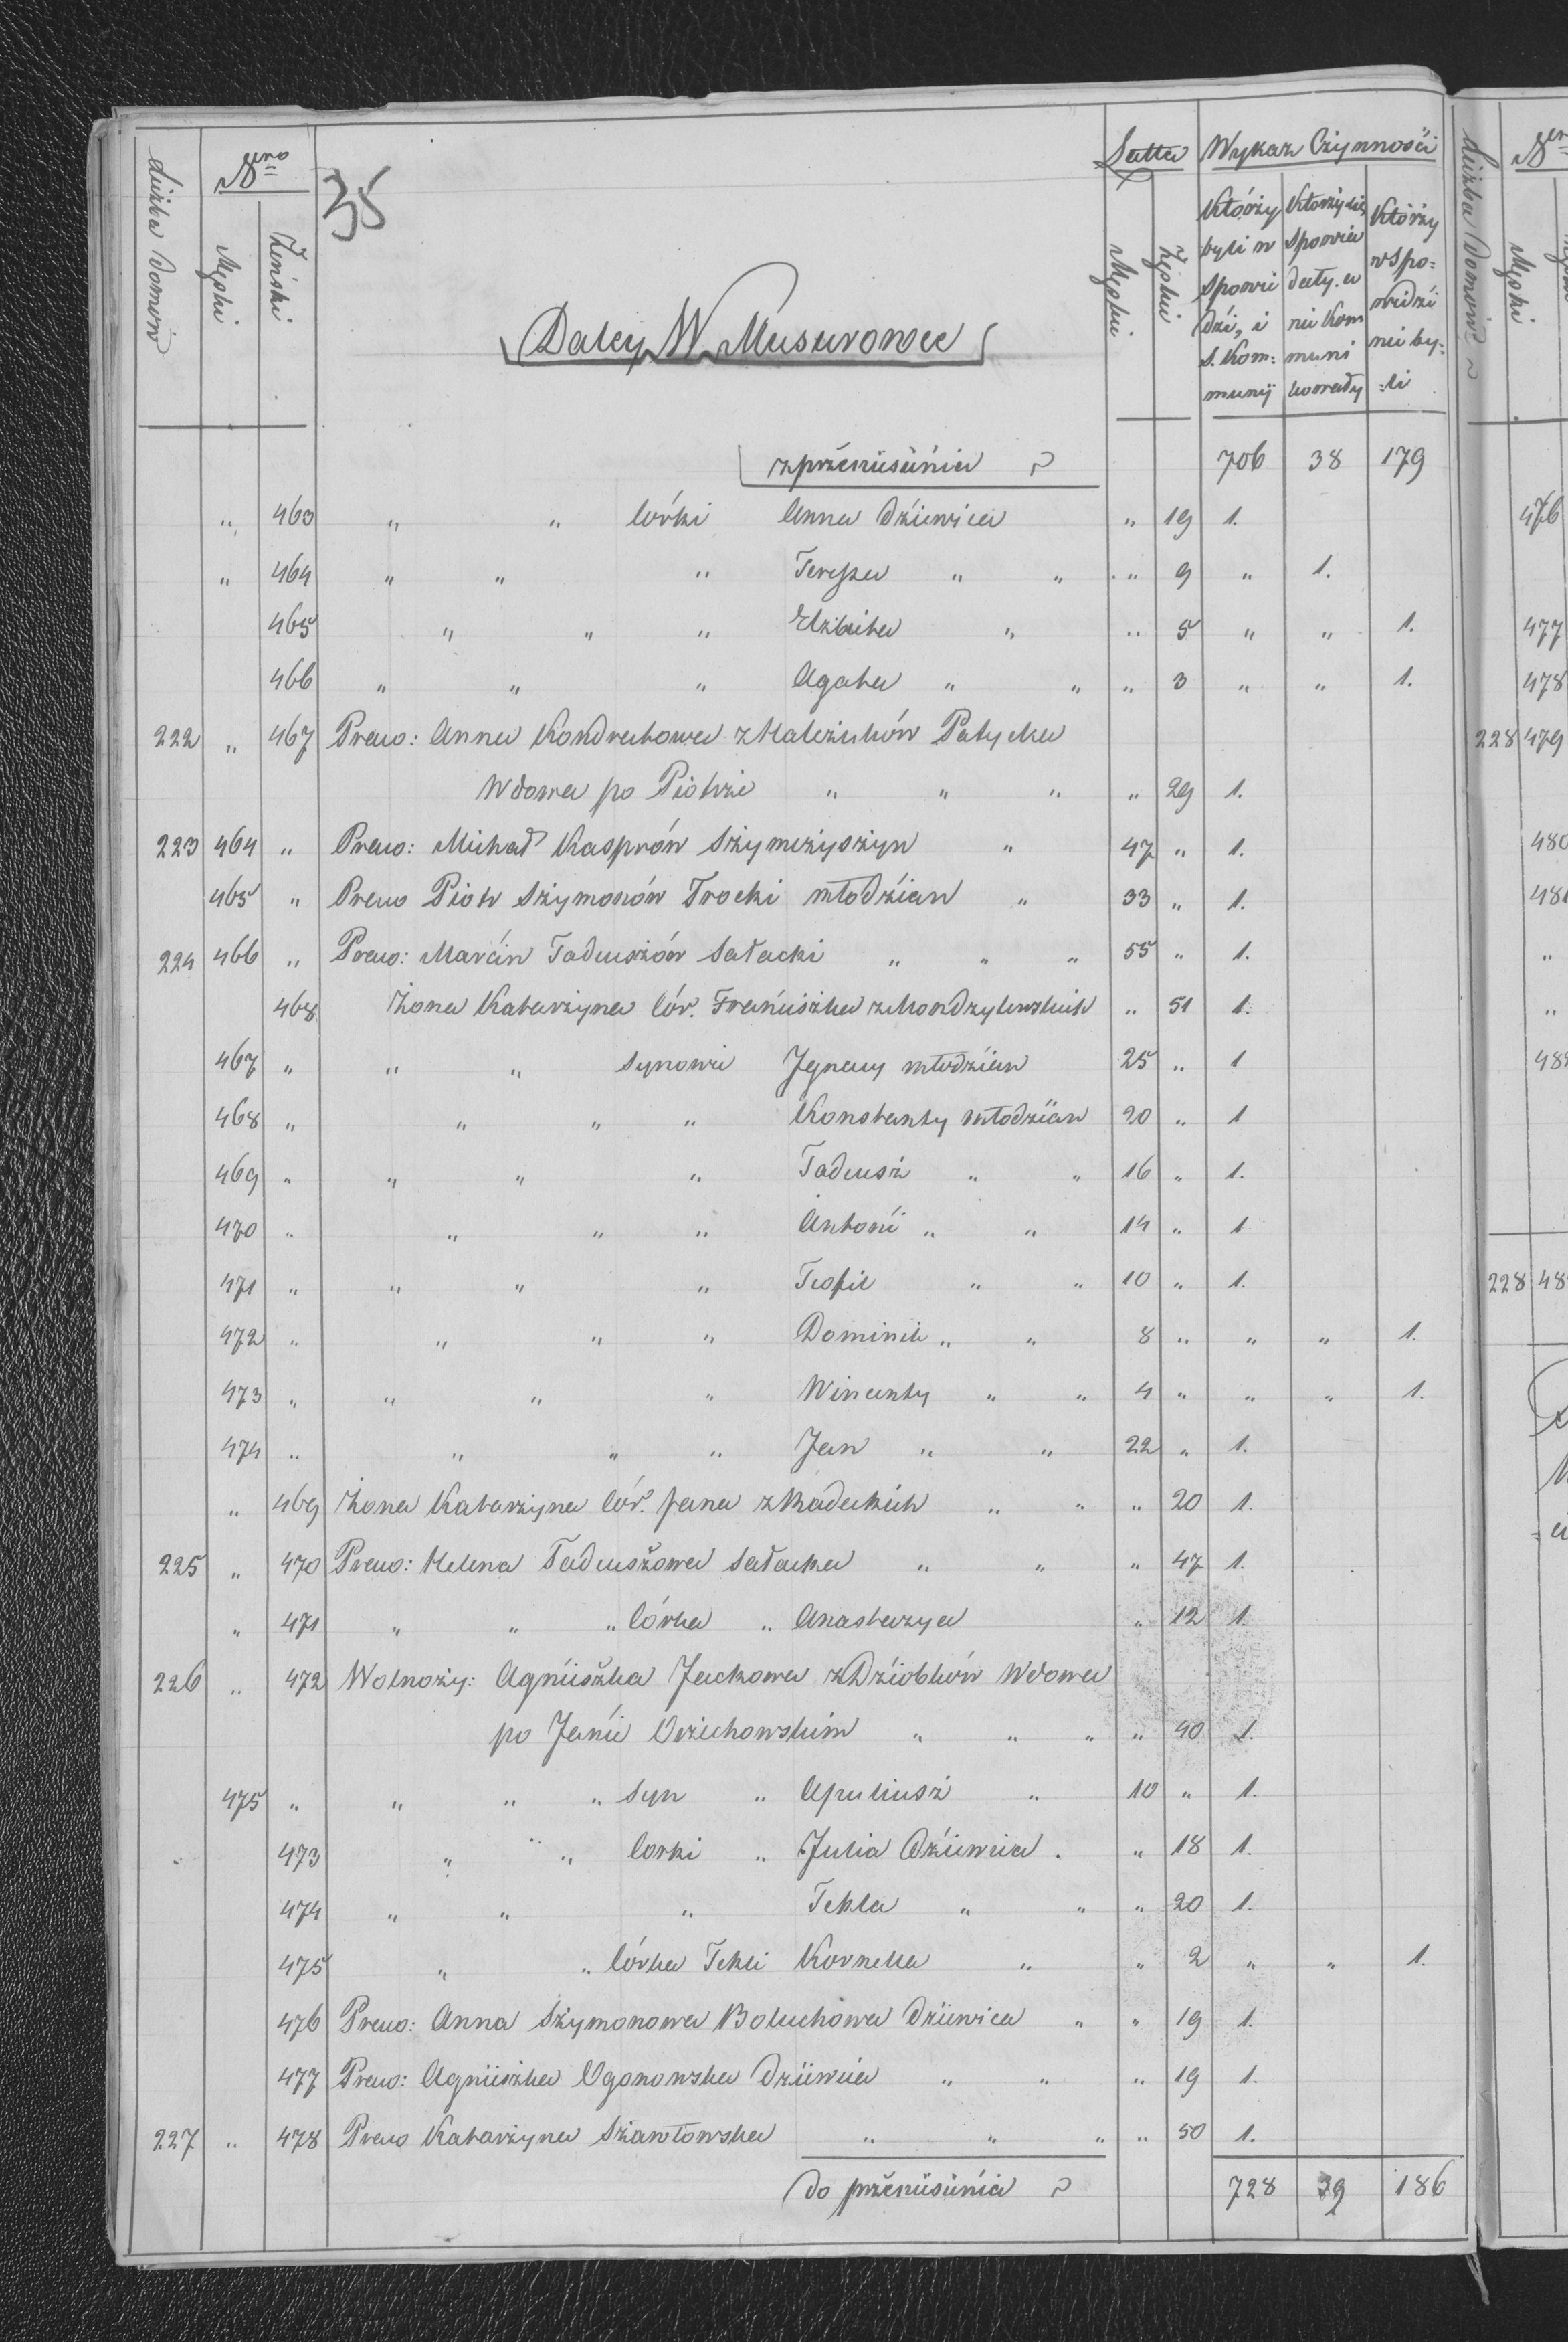 Liczba Domów Nero Męski Żeński 35 Latta Męskie Żeńskie Wykaz Czynności
Którzy byli w spowiedzi, i s. Kommunij
Którzy się spowiadały, a nie kommunikowały
Którzy w spowiedzi nie byli
Daley W Musurowce
z przeniesienia 706 38 179
" 463 " " Córki Anna Dziewica " 19 1.
" 464 " " " Teressa " " " 9 " 1.
465 " " " Elzbieta " " 5 " " 1.
466 " " " Agata " " " 3 " " 1.
222 " 467 Praco: Anna Kondratowa z Halczuków Patycka
Wdowa po Piotrze " " " " 29 1.
223 464 " Praco: Michał Kasprów Szymczyszyn " 47 " 1.
465 " Praco Piotr Szymonów Trocki młodzian " 33 " 1.
224 466 " Praco: Marcin Tadeuszów Sałacki " " " 55 " 1.
468 Żona Katarzyna Cór. Franciszka z Mondzylewskich " 51 1.
467 " " " Synowie Jgnacy młodzian 25 " 1
468 " " " " Konstanty młodzian 20 " 1
469 " " " " Tadeusz " " 16 " 1.
470 " " " " Antoni " " 14 " 1
471 " " " " Teofil " " 10 " 1.
472 " " " " Dominik " " 8 " " " 1.
473 " " " " Wincenty " " 4 " " " 1.
474 " " " " Jan " " 22 " 1.
" 469 Żona Katarzyna Cór. Jana z Radeckich " " " 20 1.
225 " 470 Praco: Helena Tadeuszowa Sałacka " " " 47 1.
" 471 " " " Córka " Anastazya " 12 1.
226 " 472 Wolnozy: Agnieszka Jackowa z Dziobków Wdowa
po Janie Orzechowskim " " " " 40 1.
475 " " " " Syn " Apuliusz " 10 " 1.
473 " " " Corki " Julia Dziewica . " 18 1.
474 " " " Tekla " " " 20 1.
475 " " Córka Tekli Kornella " " 2 " " 1.
476 Praco: Anna Szymonowa Boluchowa Dziewica " " 19 1.
477 Praco: Agnieszka Ogonowska Dziewica " " " 19 1.
227 " 478 Praco Katarzyna Szawłowska " " " " 50 1.
Do przeniesienia 728 39 186
Liczba Domów
Męski
476
477
478
228 479
480
481
"
"
228